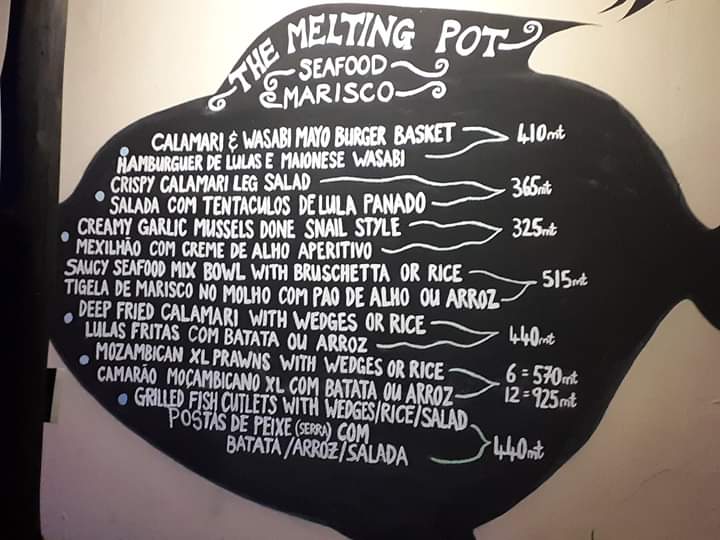 THE MELTING POT
SEAFOOD
MARISCO
CALAMARI & WASABI MAYO BURGER BASKET 410mt
HAMBURGUER DE LULAS E MAIONESE WASABI
CRISPY CALAMARI LEG SALAD 365mt
SALADA COM TENTACULOS DE LULA PANADO
CREAMY GARLIC MUSSELS DONE SNAIL STYLE 325mt
MEXILHÃO COM CREME DE ALHO APERITIVO
SAUCY SEAFOOD MIX BOWL WITH BRUSCHETTA OR RICE 515mt
TIGELA DE MARISCO NO MOLHO COM PAO DE ALHO OU ARROZ
DEEP FRIED CALAMARI WITH WEDGES OR RICE 440mt
LULAS FRITAS COM BATATA OU ARROZ
MOZAMBICAN XL PRAWNS WITH WEDGES OR RICE 6 = 570mt
CAMARÃO MOÇAMBICANO XL COM BATATA OU ARROZ 12 = 925mt
GRILLED FISH CUTLETS WITH WEDGES/RICE/SALAD
POSTAS DE PEIXE (SERRA) COM 440mt
BATATA/ARROZ/SALADA